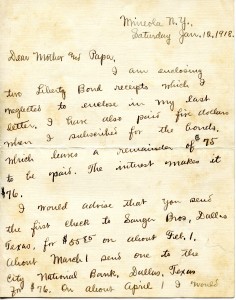 Mineola N.Y.
Saturday Jan. 12, 1918.
Dear Mother and Papa,
I am enclosing
two Liberty Bond receipts which I
neglected to enclose in my last
letter. I have also paid five dollars
when I subscribed for the bonds.
Which leaves a remainder of $75
to be paid. The interest makes it
$76.
I would advise that you send
the first check to Sanger Bros, Dallas
Texas, for $55.85 on about Feb. 1.
About March 1 send one to the
City National Bank, Dallas, Texas
for $76. On about April 1 I would